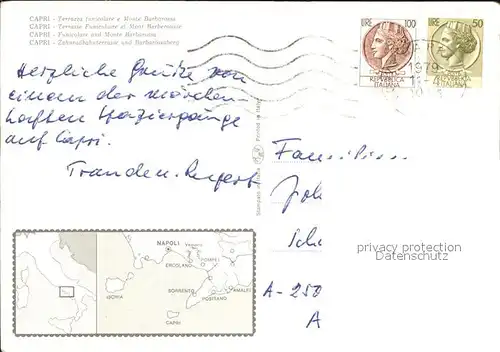 CAPRI - Terrazza funicolare e Monte Barbarossa
CAPRI - Terrasse Funiculaire et Mont Barberousse
CAPRI - Funiculare and Monte Barbarossa
CAPRI - Zahnradbahnterrasse und Barbarossaberg
LIRE 100
REPUBBLICA
ITALIANA
LIRE 50
REPUBBLICA
ITALIANA
1979
Herzliche Grüße von
einem der märchen-
haften Spaziergänge
auf Capri.
Printed in Italy
Familie
Joh
A-250
A
privacy protection
Datenschutz
NAPOLI
Vesuvio
ERCOLANO
POMPEI
ISCHIA
SORRENTO
POSITANO
AMALFI
CAPRI